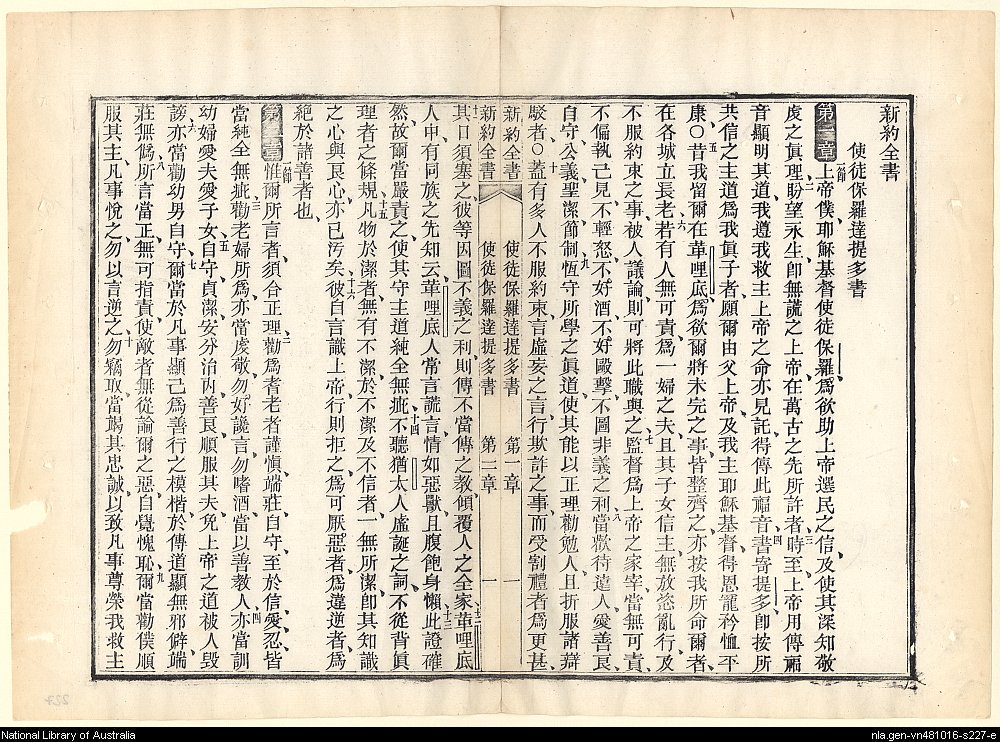 新約全書
使徒保羅達提多書
第一章 一節 上帝僕耶穌基督使徒保羅爲欲助上帝選民之信及使其深知敬
虔之眞理二盼望永生卽無謊之上帝在萬古之先所許者三時至上帝用傳福
音顯明其道我遵我救主上帝之命亦見託得傳此福音四書寄提多卽按所
共信之主道爲我眞子者願爾由父上帝及我主耶穌基督得恩寵矜恤平
康〇五昔我留爾在革哩底爲欲爾將未完之事皆整齊之亦按我所命爾者
在各城立長老六若有人無可責爲一婦之夫且其子女信主無放恣亂行及
不服約束之事被人議論則可將此職與之七監督爲上帝之家宰當無可責
不偏執己見不輕怒不好酒不好毆擊不圖非義之利八當歡待遠人愛善良
自守公義聖潔節制九恆守所學之眞道使其能以正理勸勉人且折服諸辯
駁者〇十蓋有多人不服約束言虛妄之言行欺詐之事而受割禮者爲更甚
新約全書 使徒保羅達提多書 第一章 一
新約全書 使徒保羅達提多書 第二章 一
十一其口須塞之彼等因圖不義之利則傳不當傳之教傾覆人之全家十二革哩底
人中有同族之先知云革哩底人常言謊言情如惡獸且腹飽身懶十三此證確
然故爾當嚴責之使其守主道純全無疵十四不聽猶太人虛誕之詞不從背眞
理者之條規十五凡物於潔者無有不潔於不潔及不信者一無所潔卽其知識
之心與良心亦已汚矣十六彼自言識上帝行則拒之爲可厭惡者爲違逆者爲
絕於諸善者也
第二章 一節 惟爾所言者須合正理二勸爲耆老者謹愼端莊自守至於信愛忍皆
當純全無疵三勸老婦所爲亦當虔敬勿好讒言勿嗜酒當以善教人四亦當訓
幼婦愛夫愛子女五自守貞潔安分治內善良順服其夫免上帝之道被人毀
謗六亦當勸幼男自守七爾當於凡事顯己爲善行之模楷於傳道顯無邪僻端
莊無僞八所言當正無可指責使敵者無從論爾之惡自覺愧恥九爾當勸僕順
服其主凡事悅之勿以言逆之十勿竊取當竭其忠誠以致凡事尊榮我救主
227
National Library of Australia
nla.gen-vn481016-s227-e